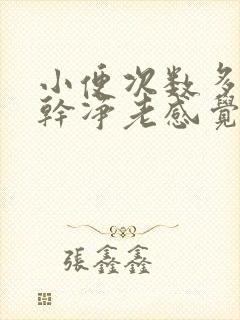 小便次数多
幹净老感覺
張鑫鑫